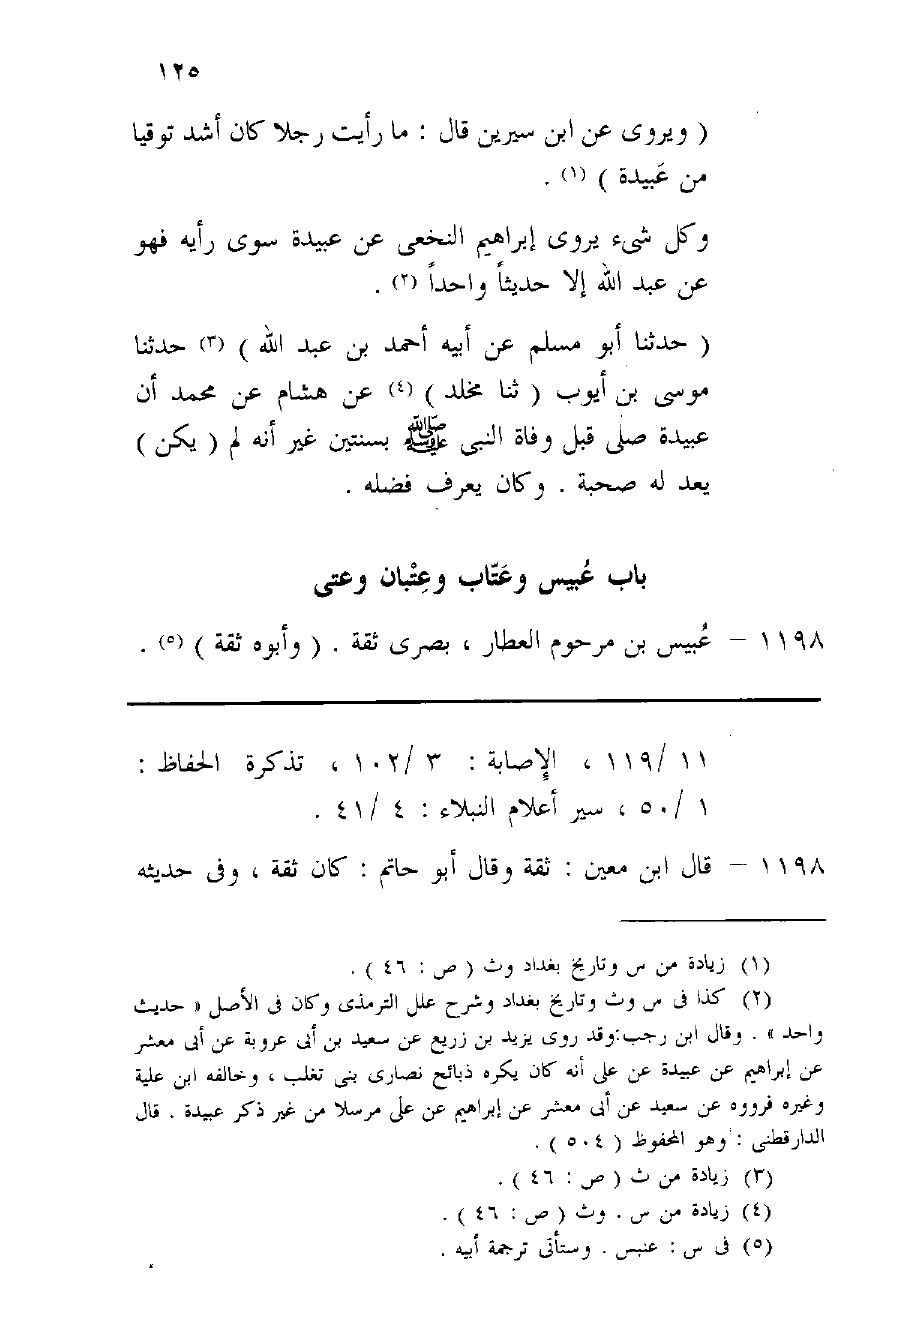 ١٢٥
( ويروى عن ابن سيرين قال : ما رأيت رجلا كان أشد توقيا
من عَبيدة ) (١) .
وكل شىء يروى إبراهيم النخعى عن عبيدة سوى رأيه فهو
عن عبد الله إلا حديثاً واحداً (٢) .
( حدثنا أبو مسلم عن أبيه أحمد بن عبد الله ) (٣) حدثنا
موسى بن أيوب ( ثنا مخلد ) (٤) عن هشام عن محمد أن
عبيدة صلى قبل وفاة النبى ﷺ بسنتين غير أنه لم ( يكن )
يعد له صحبة . وكان يعرف فضله .
باب عُبيس وعَتّاب وعِتْبان وعتى
١١٩٨ – عُبيس بن مرحوم العطار ، بصرى ثقة . ( وأبوه ثقة ) (٥) .
١١ /١١٩ ، الإصابة : ٣ /١٠٢ ، تذكرة الحفاظ :
١ /٥٠ ، سير أعلام النبلاء : ٤ /٤١ .
١١٩٨ – قال ابن معين : ثقة وقال أبو حاتم : كان ثقة ، وفى حديثه
(١) زيادة من س وتاريخ بغداد وث ( ص : ٤٦ ) .
(٢) كذا فى س وث وتاريخ بغداد وشرح علل الترمذى وكان فى الأصل « حديث
واحد » . وقال ابن رجب:وقد روى يزيد بن زريع عن سعيد بن أبى عروبة عن أبى معشر
عن إبراهيم عن عبيدة عن على أنه كان يكره ذبائح نصارى بنى تغلب ، وخالفه ابن علية
وغيره فرووه عن سعيد عن أبى معشر عن إبراهيم عن على مرسلا من غير ذكر عبيدة . قال
الدارقطنى : وهو المحفوظ ( ٥٠٤ ) .
(٣) زيادة من ث ( ص : ٤٦ ) .
(٤) زيادة من س . وث ( ص : ٤٦ ) .
(٥) فى س : عنبس . وستأتى ترجمة أبيه .